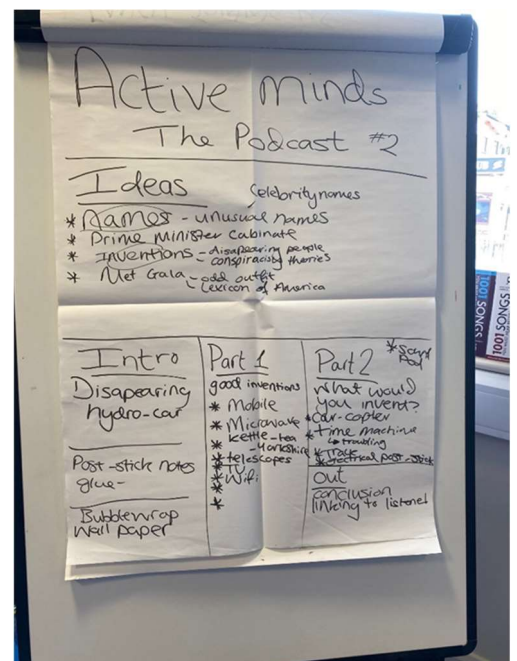 Active minds
The Podcast #2
Ideas
Celebrity names
* Names - unusual names
* Prime Minister Cabinate
* Inventions - disapearing people
conspiracisty theories
* Met Gala - odd outfit
- Lexicon of America
Intro
Disapearing
hydro-car
Post-stick notes
glue-
Bubblewrap
wall paper
Part 1
good inventions
* Mobile
* Microwave
kettle-tea
-Yorkshire
* telescopes
* TV
* Wifi
*
*
Part 2
* Scent
Pod
What would
you invent?
* Car-copter
* time machine
↳ troubling
*
* electrical post-stick
Out
conclusion
linking to listener
1001 SONGS
1001 SONGS